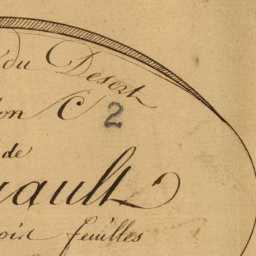 du Desert
on C
2
de
uault
oir feuilles